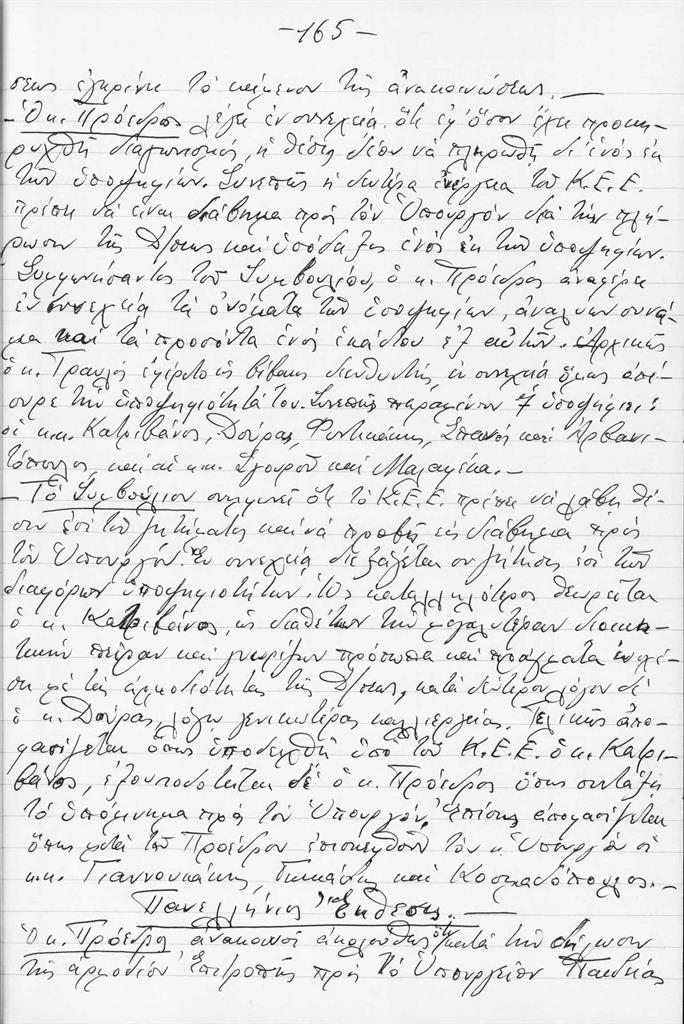 -165-
σεως ἐγκρίνει τὸ κείμενον τῆς ἀνακοινώσεως.-
-Ὁ κ. Πρόεδρος λέγει ἐν συνεχείᾳ ὅτι ἐφ' ὅσον ἔχει προκη-
ρυχθῆ διαγωνισμός, ἡ θέσις δέον νὰ πληρωθῇ δι' ἑνὸς ἐκ
τῶν ὑποψηφίων. Συνεπῶς ἡ δευτέρα ἐνέργεια τοῦ Κ.Ε.Ε.
πρέπει νὰ εἶναι διάβημα πρὸς τὸν Ὑπουργὸν διὰ τὴν πλή-
ρωσιν τῆς Δ/σεως καὶ ὑπόδειξις ἑνὸς ἐκ τῶν ὑποψηφίων.
Συμφωνήσαντος τοῦ Συμβουλίου, ὁ κ. Πρόεδρος ἀναφέρει
ἐν συνεχείᾳ τὰ ὀνόματα τῶν ὑποψηφίων, ἀναλύων συνά-
μα καὶ τὰ προσόντα ἑνὸς ἑκάστου ἐξ αὐτῶν. Ἀρχικῶς
ὁ κ. Τραυλὸς ἐφέρετο ὡς βέβαιος διευθυντής, ἐν συνεχείᾳ ὅμως ἀπέ-
συρε τὴν ὑποψηφιότητά του. Συνεπῶς παραμένουν 7 ὑποψήφιοι:
οἱ κ.κ. Κατριβάνος, Δούρας, Φουντουκάκης, Σπανὸς καὶ Ἀρβανι-
τόπουλος, καὶ αἱ κ.κ. Σγουροῦ καὶ Μαλαφέκα.-
-Τὸ Συμβούλιον συμφωνεῖ ὅτι τὸ Κ.Ε.Ε. πρέπει νὰ λάβῃ θέ-
σιν ἐπὶ τοῦ ζητήματος καὶ νὰ προβῇ εἰς διάβημα πρὸς
τὸν Ὑπουργόν. Ἐν συνεχείᾳ διεξάγεται συζήτησις ἐπὶ τῶν
διαφόρων ὑποψηφιοτήτων. Ὡς καταλληλότερος θεωρεῖται
ὁ κ. Κατριβάνος, ὡς διαθέτων τὴν μεγαλυτέραν διοικη-
τικὴν πεῖραν καὶ γνωρίζων πρόσωπα καὶ πράγματα ἐν σχέ-
σει μὲ τὰς ἁρμοδιότητας τῆς Δ/σεως, κατὰ δεύτερον λόγον δὲ
ὁ κ. Δούρας, λόγῳ γενικωτέρας καλλιεργείας. Τελικῶς ἀπο-
φασίζεται ὅπως ὑποδειχθῆ ὑπὸ τοῦ Κ.Ε.Ε. ὁ κ. Κατρι-
βάνος, ἐξουσιοδοτεῖται δὲ ὁ κ. Πρόεδρος ὅπως συντάξῃ
τὸ ὑπόμνημα πρὸς τὸν Ὑπουργόν. Ἐπίσης ἀποφασίζεται
ὅπως μετὰ τοῦ Προέδρου ἐπισκεφθοῦν τὸν κ. Ὑπουργὸν οἱ
κ.κ. Γιαννουκάκης, καὶ Κοσμαδόπουλος.-
Πανελλήνιος Ἔκθεσις.-
Ὁ κ. Πρόεδρος ἀνακοινοῖ ἀκολούθως ὅτι κατὰ τὴν δήλωσιν
τῆς ἁρμοδίου Ἐπιτροπῆς πρὸς τὸ Ὑπουργεῖον Παιδείας